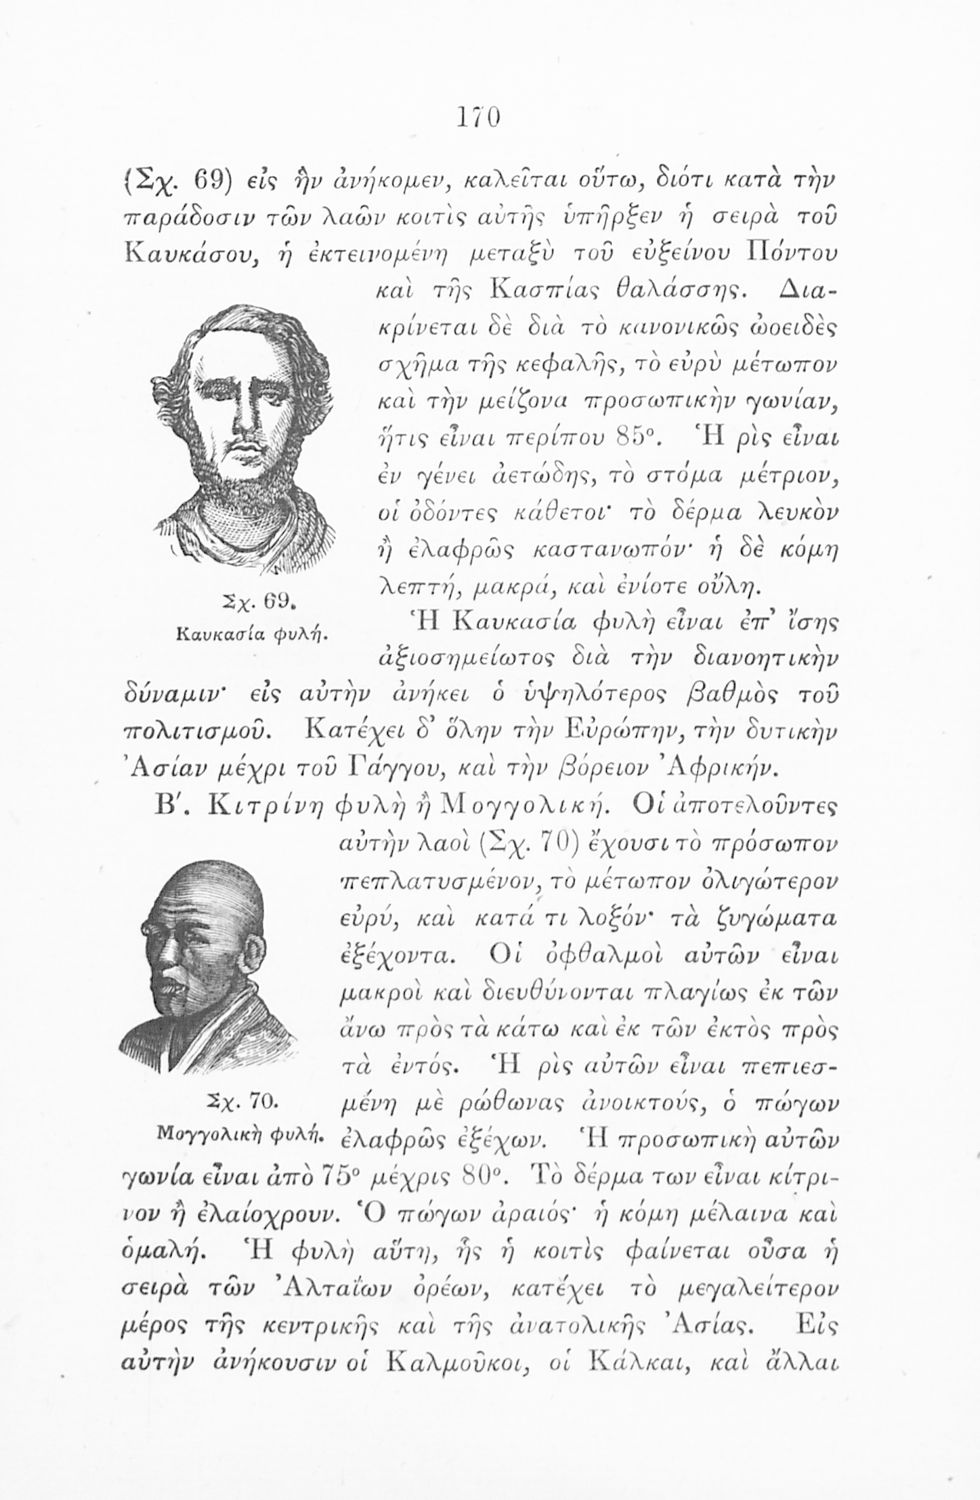 170
(Σχ. 69) εἰς ἣν ἀνήκομεν, καλεῖται οὕτω, διότι κατὰ τὴν
παράδοσιν τῶν λαῶν κοιτὶς αὐτῆς ὑπῆρξεν ἡ σειρὰ τοῦ
Καυκάσου, ἡ ἐκτεινομένη μεταξὺ τοῦ εὐξείνου Πόντου
καὶ τῆς Κασπίας θαλάσσης. Δια-
κρίνεται δὲ διὰ τὸ κανονικῶς ὠοειδὲς
σχῆμα τῆς κεφαλῆς, τὸ εὐρὺ μέτωπον
καὶ τὴν μείζονα προσωπικὴν γωνίαν,
ἥτις εἶναι περίπου 85°. Ἡ ρὶς εἶναι
ἐν γένει ἀετώδης, τὸ στόμα μέτριον,
οἱ ὀδόντες κάθετοι· τὸ δέρμα λευκὸν
ἢ ἐλαφρῶς καστανωπόν· ἡ δὲ κόμη
λεπτή, μακρά, καὶ ἐνίοτε οὔλη.
Σχ. 69.
Καυκασία φυλή.
Ἡ Καυκασία φυλὴ εἶναι ἐπ' ἴσης
ἀξιοσημείωτος διὰ τὴν διανοητικὴν
δύναμιν· εἰς αὐτὴν ἀνήκει ὁ ὑψηλότερος βαθμὸς τοῦ
πολιτισμοῦ. Κατέχει δ' ὅλην τὴν Εὐρώπην, τὴν δυτικὴν
Ἀσίαν μέχρι τοῦ Γάγγου, καὶ τὴν βόρειον Ἀφρικήν.
Β'. Κιτρίνη φυλὴ ἢ Μογγολική. Οἱ ἀποτελοῦντες
αὐτὴν λαοὶ (Σχ. 70) ἔχουσι τὸ πρόσωπον
πεπλατυσμένον, τὸ μέτωπον ὀλιγώτερον
εὐρύ, καὶ κατά τι λοξόν· τὰ ζυγώματα
ἐξέχοντα. Οἱ ὀφθαλμοὶ αὐτῶν εἶναι
μακροὶ καὶ διευθύνονται πλαγίως ἐκ τῶν
ἄνω πρὸς τὰ κάτω καὶ ἐκ τῶν ἐκτὸς πρὸς
τὰ ἐντός. Ἡ ρὶς αὐτῶν εἶναι πεπιεσ-
μένη μὲ ρώθωνας ἀνοικτούς, ὁ πώγων
ἐλαφρῶς ἐξέχων. Ἡ προσωπικὴ αὐτῶν
Σχ. 70.
Μογγολικὴ φυλή.
γωνία εἶναι ἀπὸ 75° μέχρις 80°. Τὸ δέρμα των εἶναι κίτρι-
νον ἢ ἐλαίοχρουν. Ὁ πώγων ἀραιός· ἡ κόμη μέλαινα καὶ
ὁμαλή. Ἡ φυλὴ αὕτη, ἧς ἡ κοιτὶς φαίνεται οὖσα ἡ
σειρὰ τῶν Ἀλταΐων ὀρέων, κατέχει τὸ μεγαλείτερον
μέρος τῆς κεντρικῆς καὶ τῆς ἀνατολικῆς Ἀσίας. Εἰς
αὐτὴν ἀνήκουσιν οἱ Καλμοῦκοι, οἱ Κάλκαι, καὶ ἄλλαι